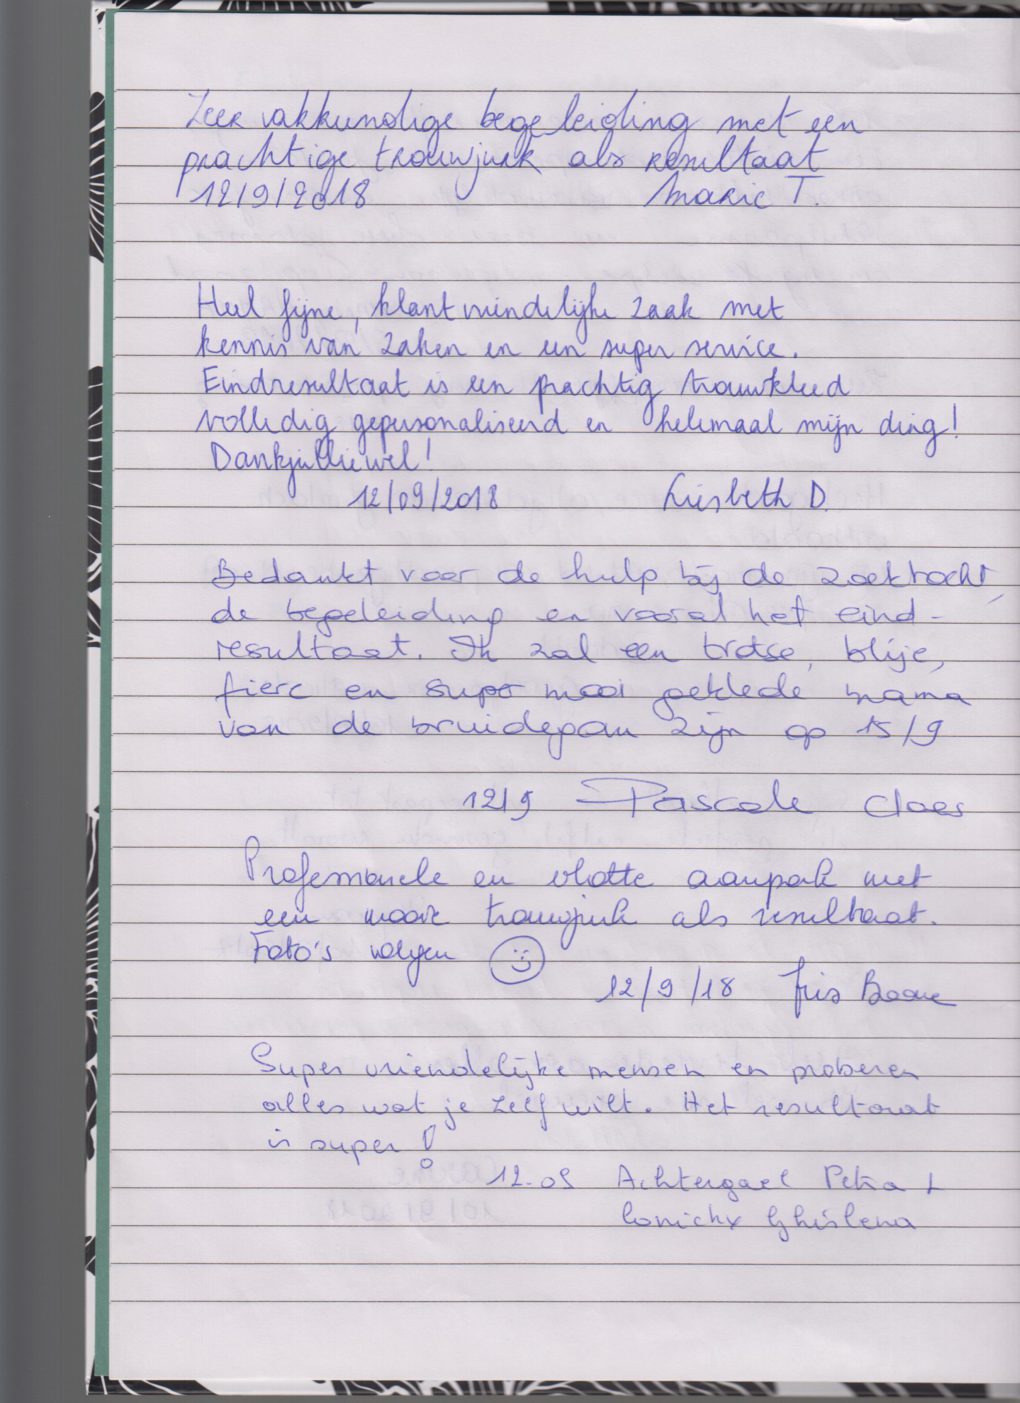 Zeer vakkundige begeleiding met een
prachtige trouwjurk als resultaat
12/9/2018 Marie T.
Heel fijne, klantvriendelijke zaak met
kennis van zaken en een super service.
Eindresultaat is een prachtig trouwkleed
volledig gepersonaliseerd en helemaal mijn ding!
Dankjulliewel!
12/09/2018 Liesbeth D.
Bedankt voor de hulp bij de zoektocht,
de begeleiding en vooral het eind-
resultaat. Ik zal een trotse, blije,
fiere en super mooi geklede mama
van de bruidegom zijn op 15/9
12/9 Pascale Claes
Professionele en vlotte aanpak met
een mooie trouwjurk als resultaat.
Foto's volgen
12/9/18 Iris
Super vriendelijke mensen en proberen
alles wat je zelf wilt. Het resultaat
is super!
12.09 Achtergael Petra +
Ghislena